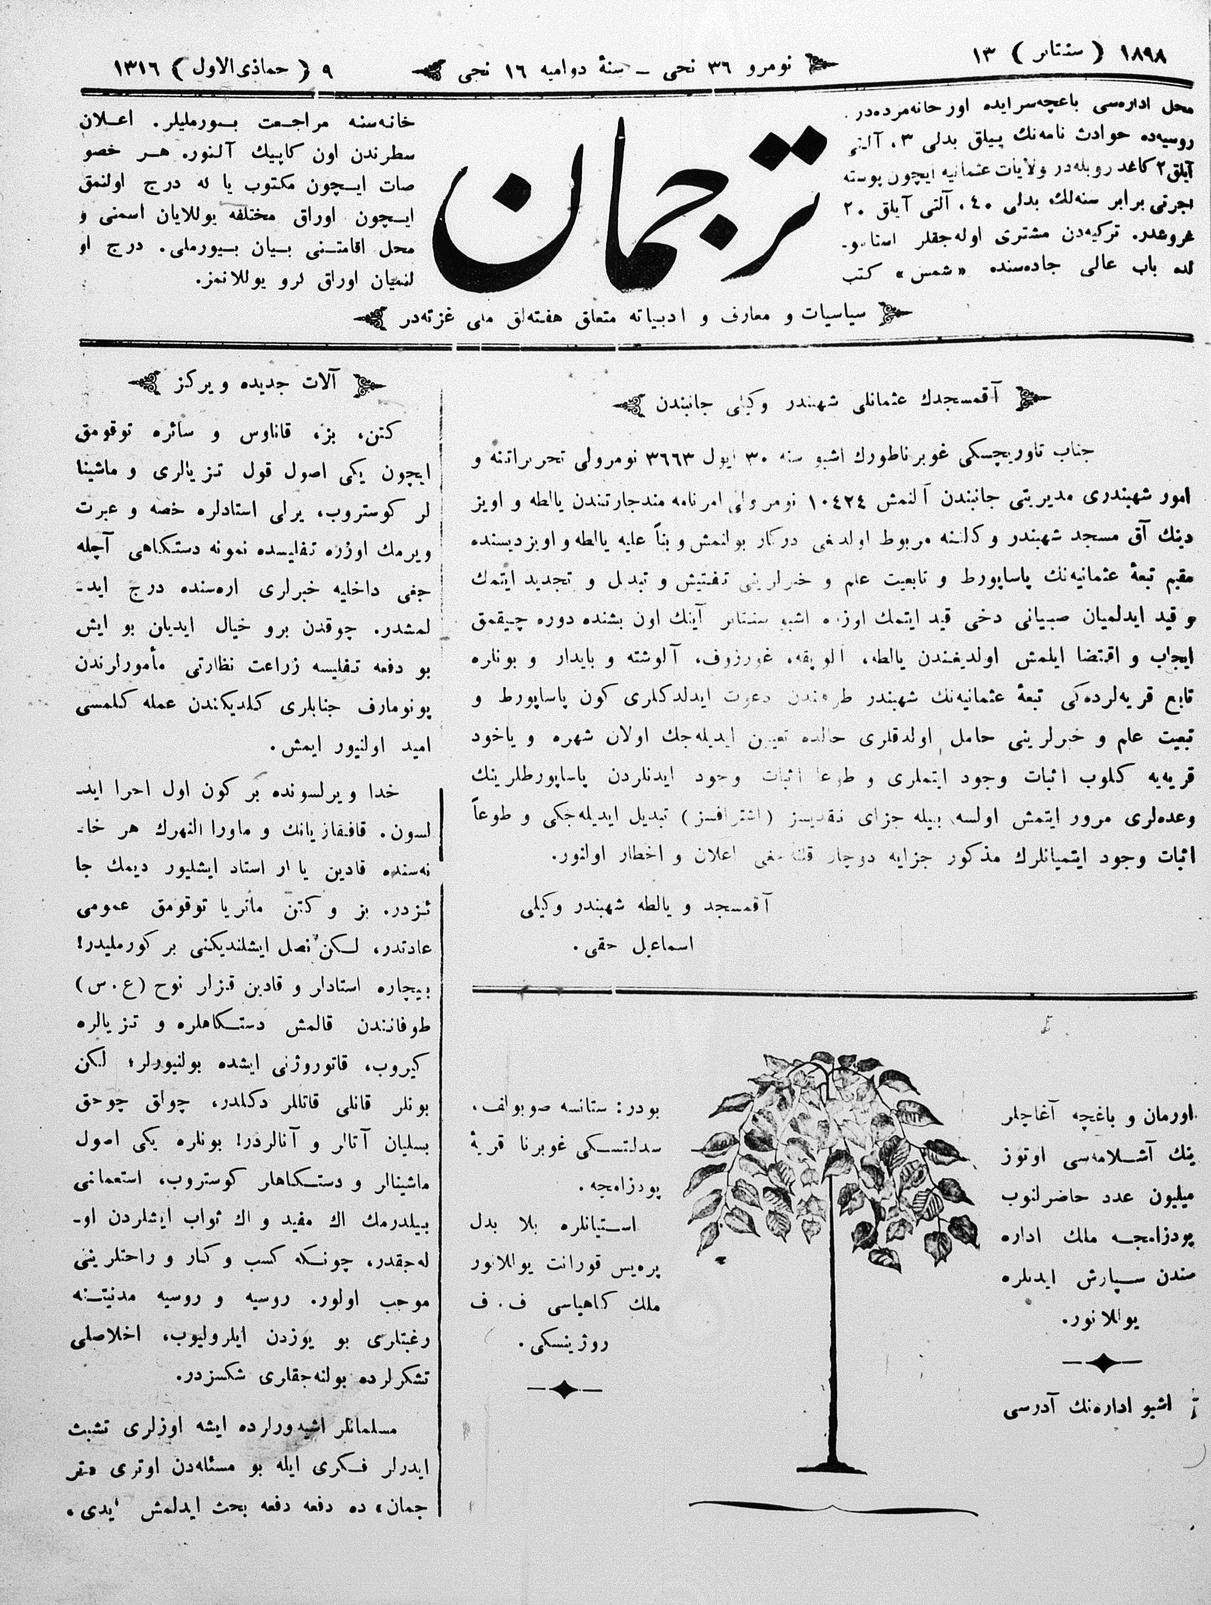 ١٨٩٨ ( سنتابر ) ١٣
نومرو ٣٦ نجى ـ سنۀ دواميه ١٦ نجى
٩ ( جماذى الاول ) ١٣١٦
محل اداره‌سى باغچه‌سرايده اورخانه‌مزده‌در.
روسيه‌ده حوادث نامه‌نك ييللق بدلى ٣، آلتى
آيلق ٢ كاغد روبله‌در ولايات عثمانيه ايچون پوسته
اجرتى برابر سنه‌لك بدلى ٤٠، آلتى آيلق ٢٠
غروشدر. تركيه‌دن مشترى اوله‌جقلر استانبو-
لده باب عالى جاده‌سنده «شمس» كتب
ترجمان
خانه‌سنه مراجعت بيورمليلر. اعلان
سطرندن اون كاپيك آلنور. هر خصو
صات ايچون مكتوب يا له درج اولنمق
ايچون اوراق مختلفه يوللايان اسمنى و
محل اقامتنى بيان بيورملى. درج او
لنميان اوراق كرو يوللانمز.
سياسيات و معارف و ادبياته متعلق هفته‌لق ملى غزته‌در
آقمسجدك عثمانلى شهبندر وكيلى جانبندن
جناب تاوريچسكى غوبرناطورك اشبو سنه ٣٠ ايول ٣٦٦٣ نومرولى تحريراتنه و
امور شهبندرى مديريتى جانبندن آلنمش ١٠٤٢٤ نومرولى امرنامه مندجارتندن يالطه و اويز
دينك آق مسجد شهبندر وكالتنه مربوط اولديغى دركار بولنمش و بناً عليه يالطه و اويزديسنده
مقيم تبعۀ عثمانيه‌نك پاساپورط و تابعيت علم و خبرلرينى تفتيش و تبديل و تجديد ايتمك
و قيد ايدلميان صبيانى دخى قيد ايتمك اوزره اشبو سنتابر آينك اون بشنده دوره چيقمق
ايجاب و اقتضا ايلمش اولديغندن يالطه، آلوپقه، غورزوف، آلوشته و بايدار و بونلره
تابع قريه‌لرده‌كى تبعۀ عثمانيه‌نك شهبندر طرفندن دعوت ايدلدكلرى كون پاساپورط و
تبعيت علم و خبرلرينى حامل اولدقلرى حالده تعيين ايديله‌جك اولان شهره و ياخود
قريه‌يه كلوب اثبات وجود ايتملرى و طوعا اثبات وجود ايدنلردن پاساپورطلرينك
وعده‌لرى مرور ايتمش اولسه بيله جزاى نقديسز (اشترافسز) تبديل ايديله‌جكى و طوعاً
اثبات وجود ايتميانلرك مذكور جزايه دوچار قلنمغى اعلان و اخطار اولنور.
آقمسجد و يالطه شهبندر وكيلى
اسماعيل حقى.
اورمان و باغچه آغاچلر
ينك آشلامه‌سى اوتوز
ميليون عدد حاضرلنوب
پودزامچه ملك اداره
سندن سپارش ايدنلره
يوللانور.
اشبو اداره‌نك آدرسى
بودر: ستانسه صوبولف،
سدلتسكى غوبرنا قريۀ
پودزامچه.
استيانلره بلا بدل
پره‌يس قورانت يوللانور
ملك كاهياسى ف. ف
روژينسكى.
آلات جديده و يركز
كتن، بز، قاناوس و سائره توقومق
ايچون يكى اصول قول تزيالرى و ماشينا
لر كوستروب، يرلى استادلره خصه و عبرت
ويرمك اوزره تفليسده نمونه دستكاهى آچله
جغى داخليه خبرلرى اره‌سنده درج ايد-
لمشدر. چوقدن برو خيال ايديلن بو ايش
بو دفعه تفليسه زراعت نظارتى مأمورلرندن
پونومارف جنابلرى كلديكندن عمله كلمسى
اميد اولنيور ايمش.
خدا ويرلسونده بر كون اول اجرا ايد-
لسون. قافقازيانك و ماورا النهرك هر خا-
نه‌سنده قادين يا ار استاد ايشليور ديمك جا
ئزدر. بز و كتن ماتريا توقومق عمومى
عادتدر، لكن نصل ايشلنديكنى بر كورمليدر!
بيچاره استادلر و قادين قزلر نوح (ع.س)
طوفانندن قالمش دستكاهلره و تزيالره
كيروب، قاتوروژنى ايشده بولنيورلر؛ لكن
بونلر قانلى قاتللر دكلدر، چولق چوجق
بسليان آتالر و آنالردر! بونلره يكى اصول
ماشينالر و دستكاهلر كوستروب، استعمالنى
بيلدرمك اك مفيد و اك ثواب ايشلردن او-
له‌جقدر، چونكه كسب و كار و راحتلرينى
موجب اولور. روسيه و روسيه مدنيتنه
رغبتلرى بو يوزدن ايلروليوب، اخلاصلى
تشكرلرده بولنه‌جقلرى شكسزدر.
مسلمانلر اشبو ورلرده ايشه اوزلرى تشبث
ايدرلر فكرى ايله بو مسئله‌دن اوترى «تر
جمان» ده دفعه دفعه بحث ايدلمش ايدى.